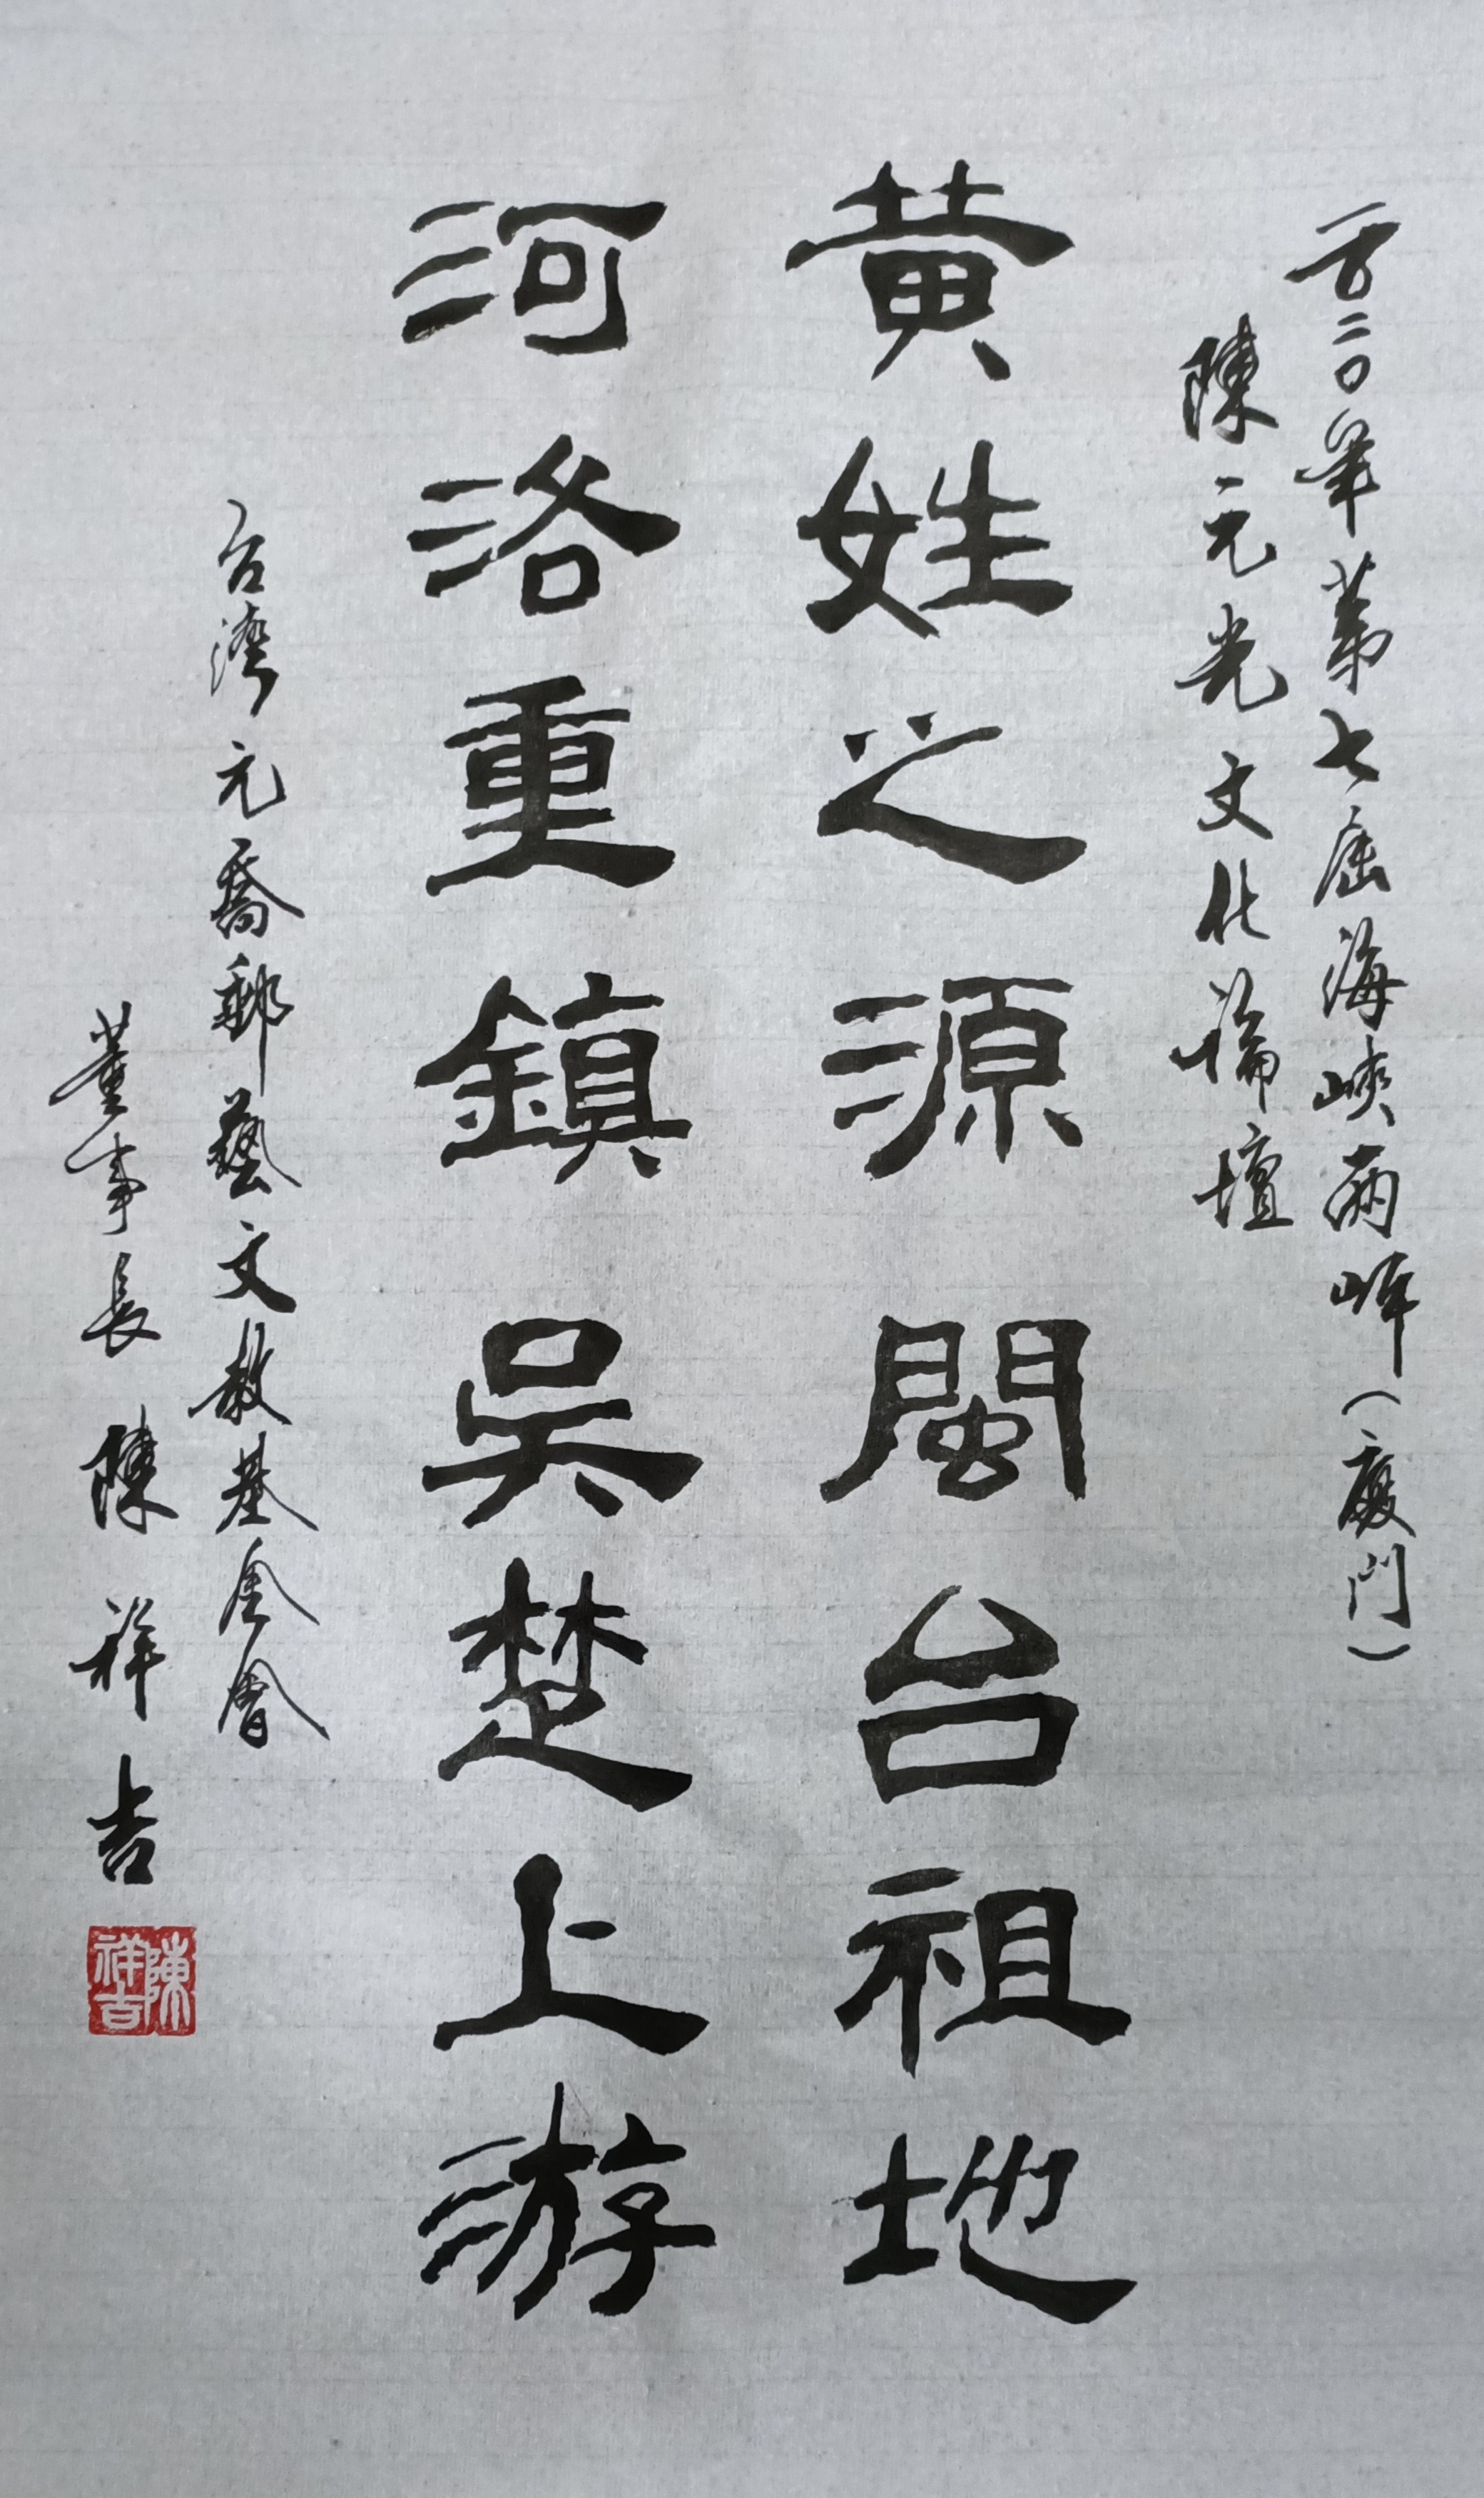 二〇二〇年第七屆海峽兩岸（廈門）
陳元光文化論壇
黄姓之源 閩台祖地
河洛重鎮 吴楚上游
台灣元喬郵藝文教基金會
董事長 陳祥吉
陳祥吉